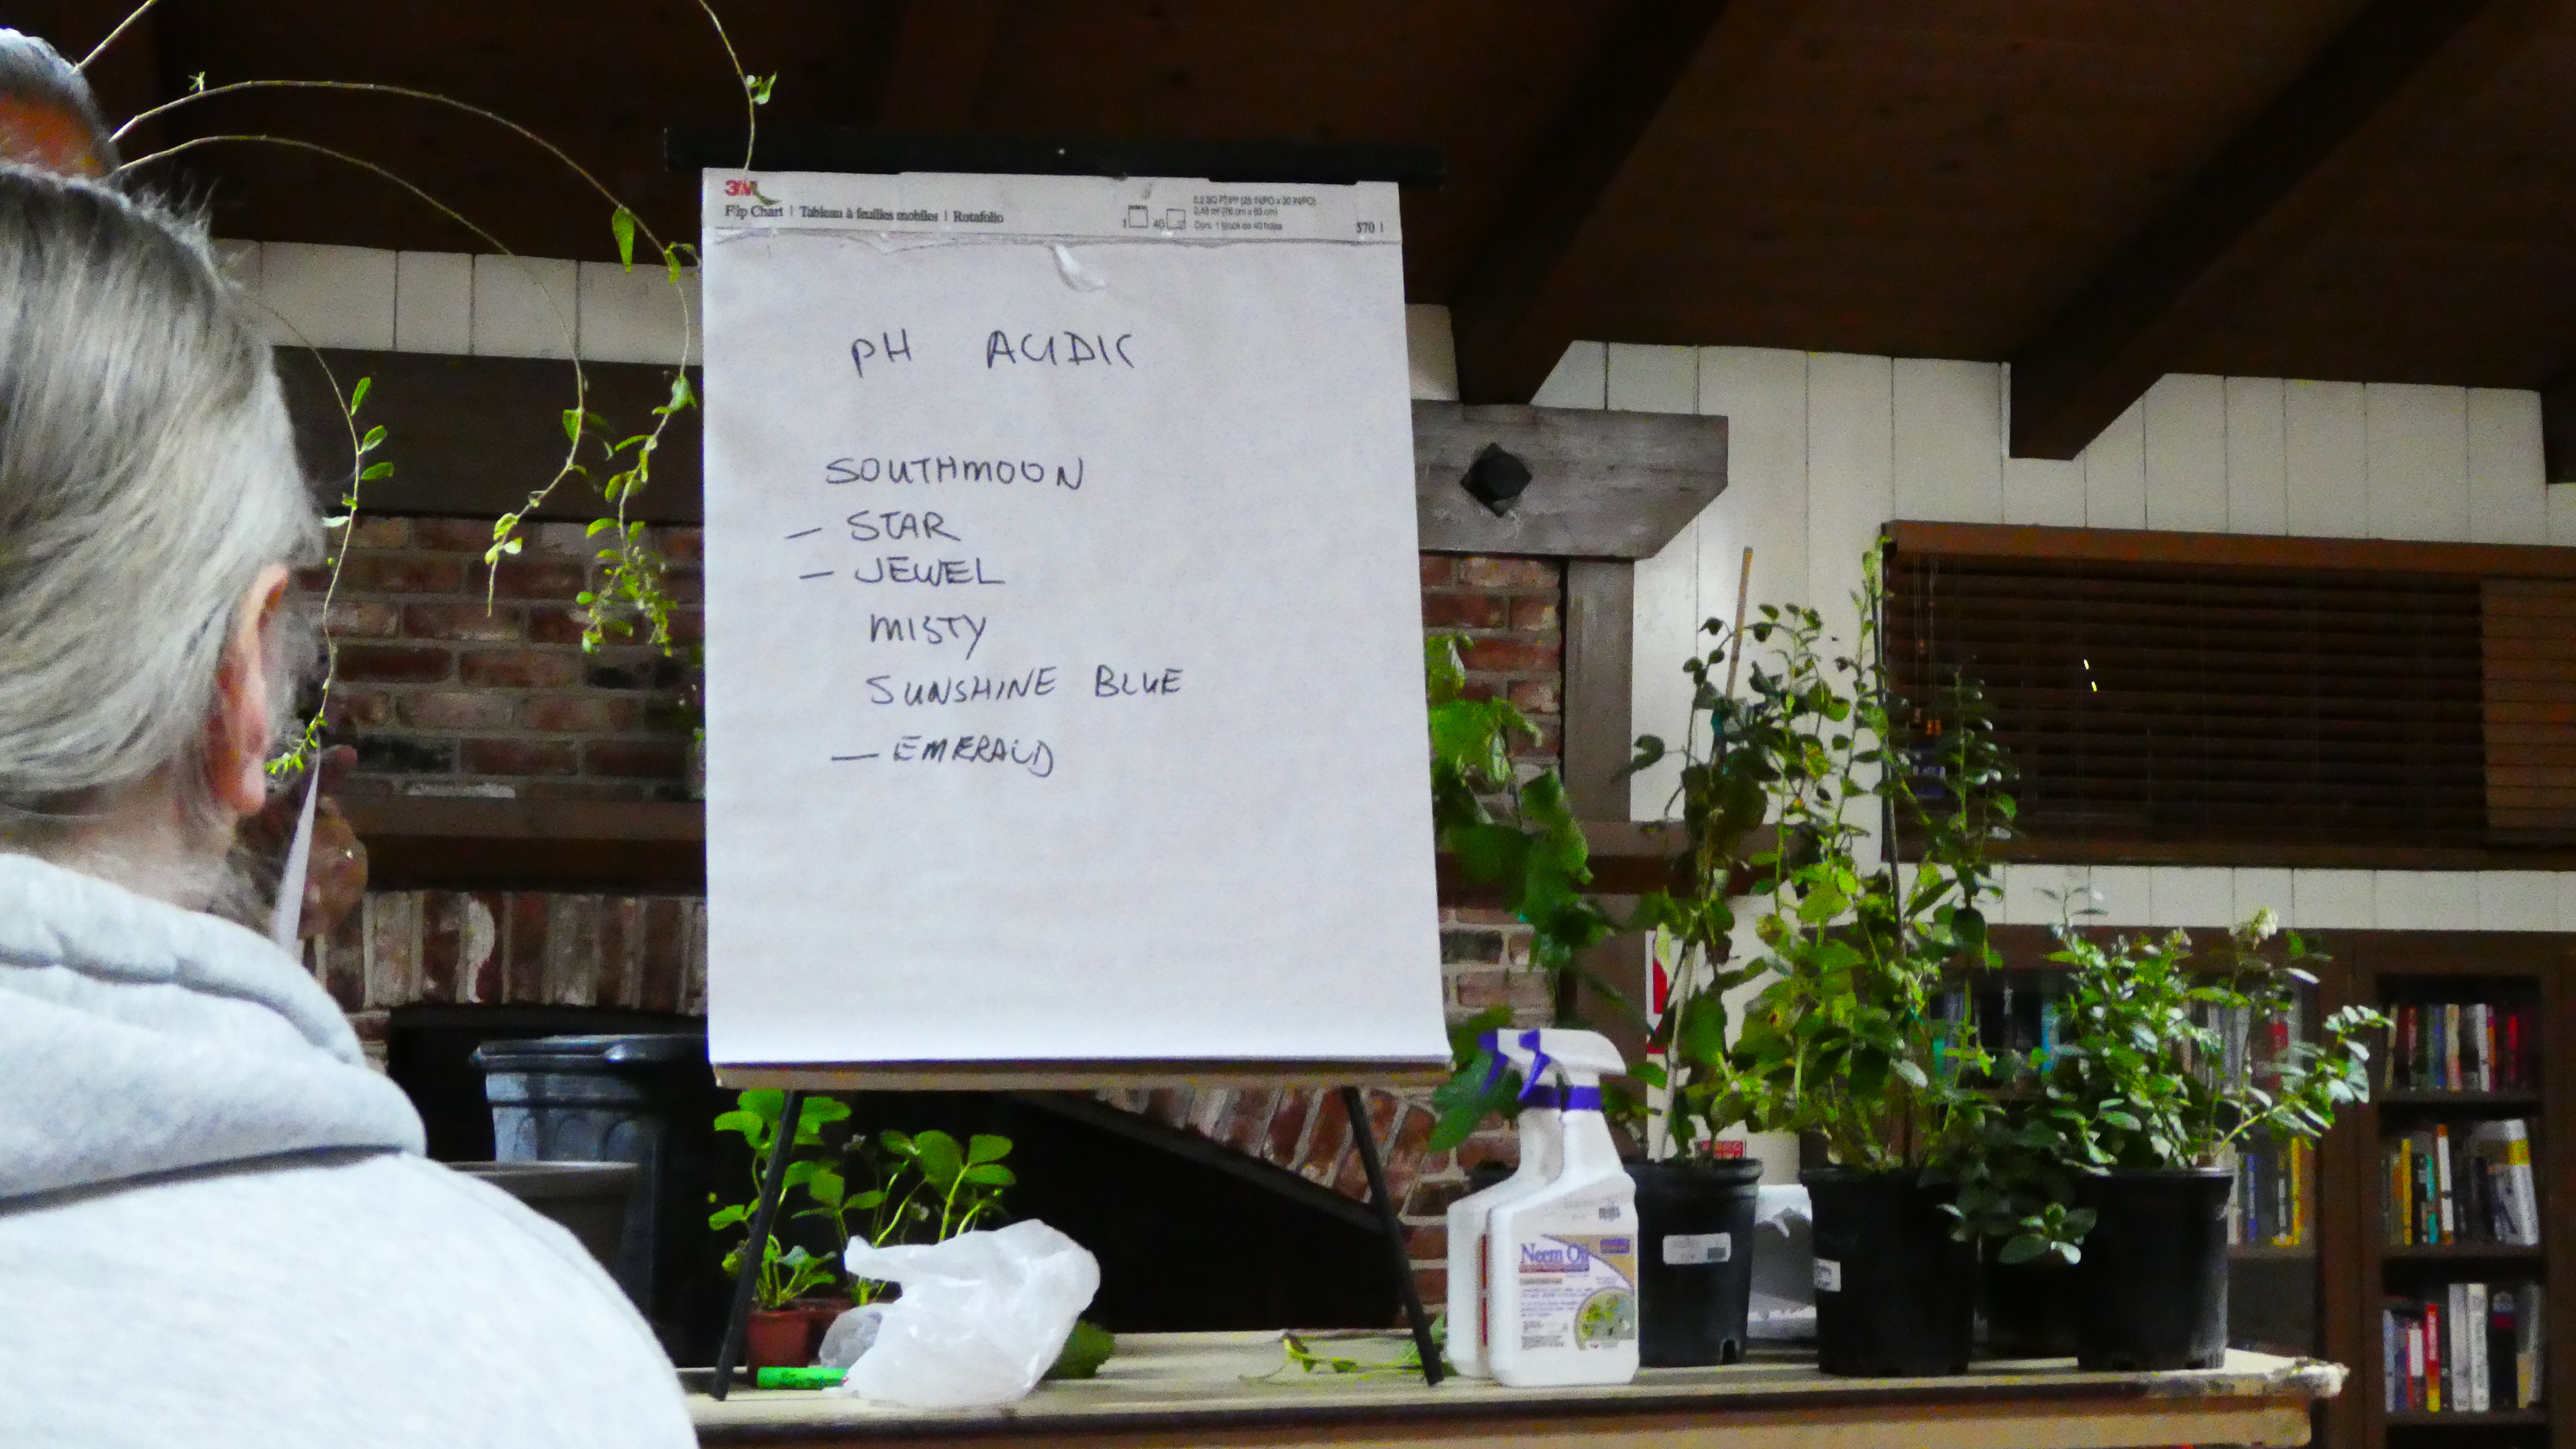 3M
Flip Chart | Tableau à feuilles mobiles | Rotafolio
570
pH ACIDIC
SOUTHMOON
— STAR
— JEWEL
MISTY
SUNSHINE BLUE
— EMERALD
Neem Oil